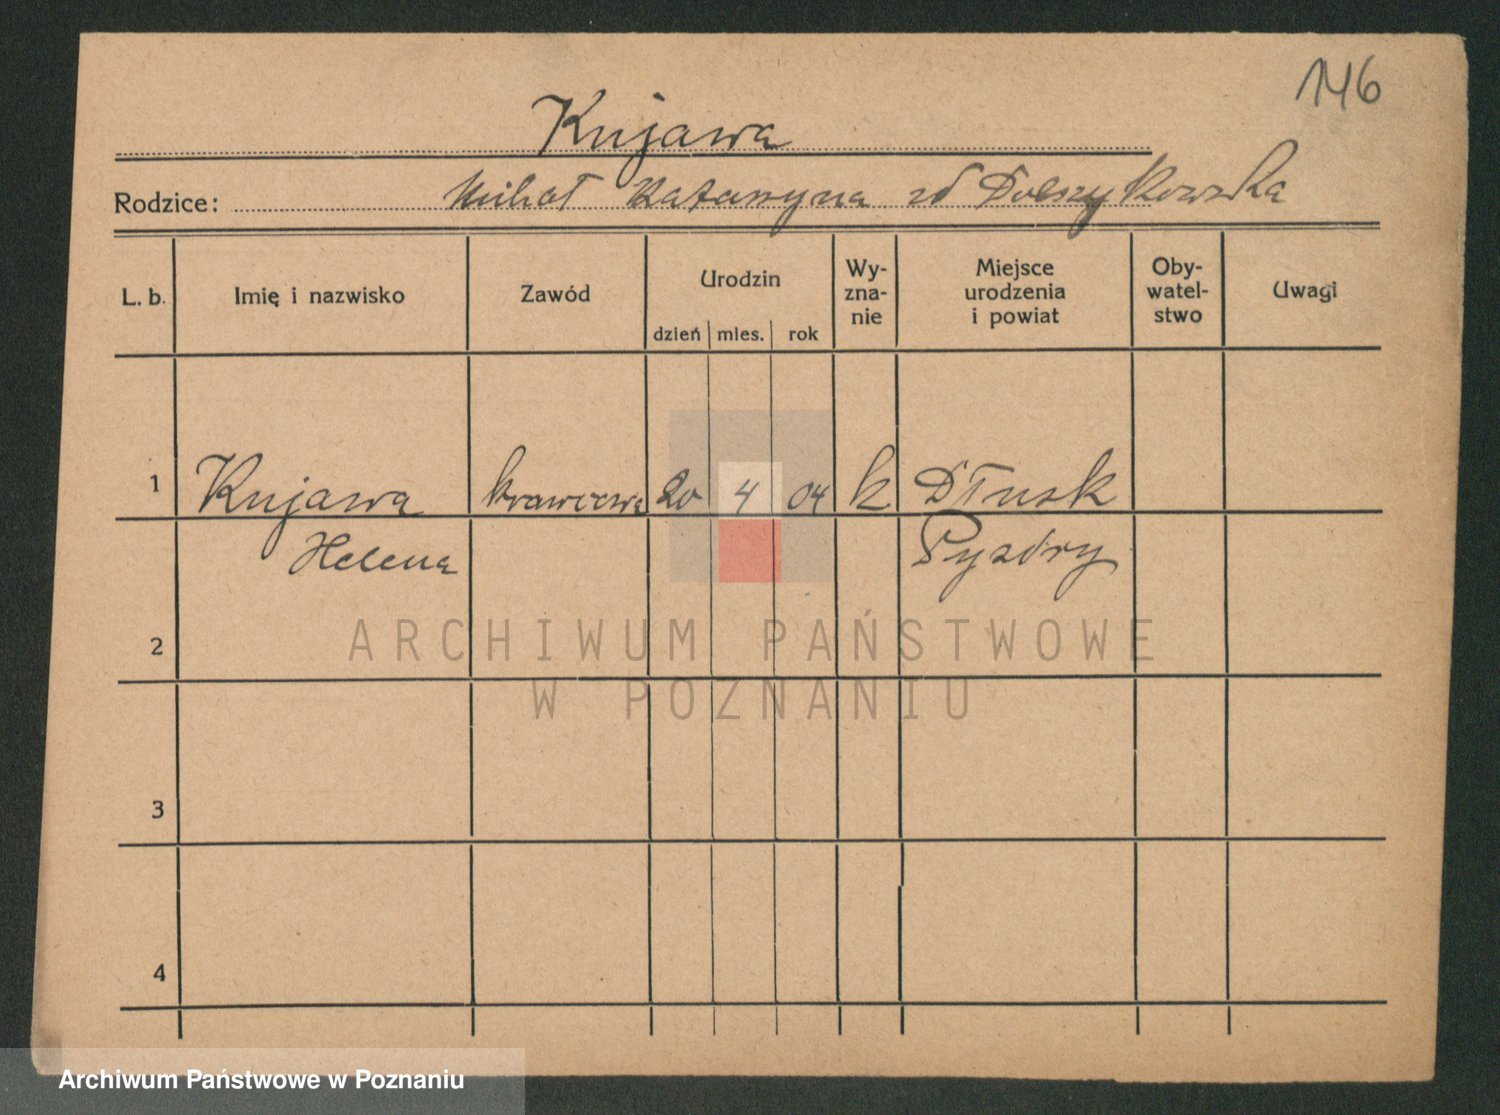 146
Kujawa
Rodzice: Michał Katarzyna zd
L. b. Imię i nazwisko Zawód Urodzin dzień mies. rok Wy-zna-nie Miejsce urodzenia i powiat Oby-watel-stwo Uwagi
1 Kujawa krawcowa 20 4 04 k Dłusk
Helena Pyzdry
2
ARCHIWUM PAŃSTWOWE
W POZNANIU
3
4
Archiwum Państwowe w Poznaniu